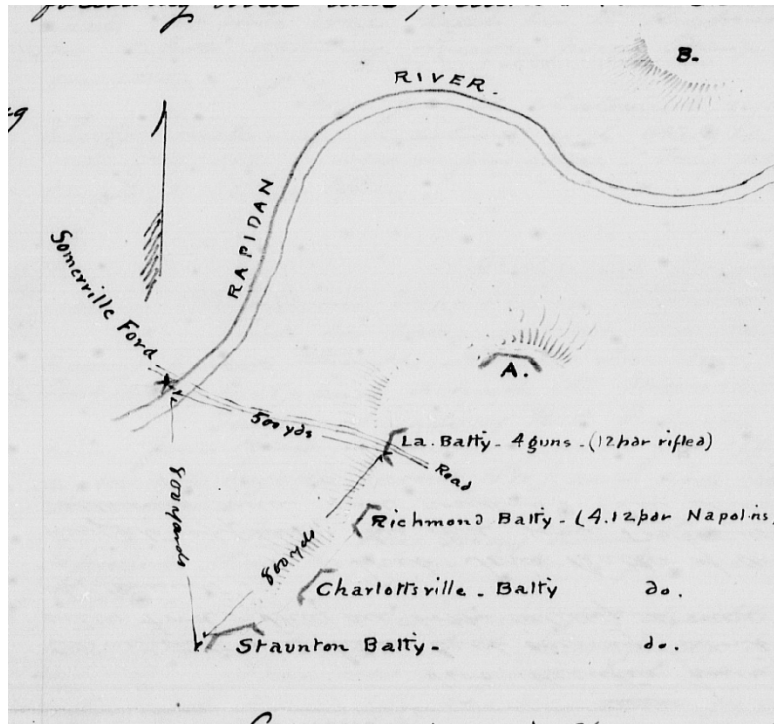 B.
RIVER.
RAPIDAN
Somerville Ford
A.
500 yds
La. Batty - 4 guns - (12 pdr rifled)
Road
800 yards
Richmond Batty - (4. 12 pdr Napolns,
800 yds
Charlottsville - Batty do.
Staunton Batty - do.